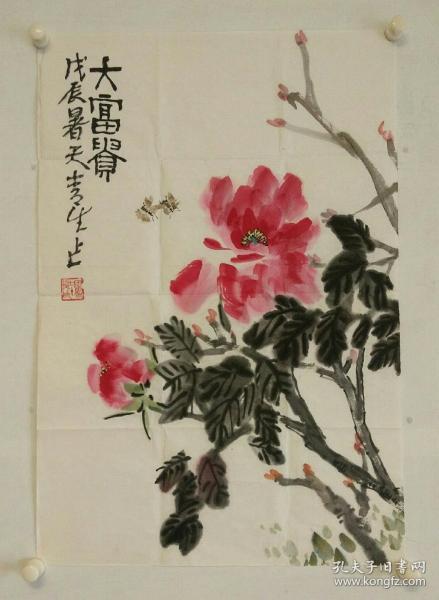 大富貴
戊辰暑天青生上
孔夫子旧书网
www.kongfz.com